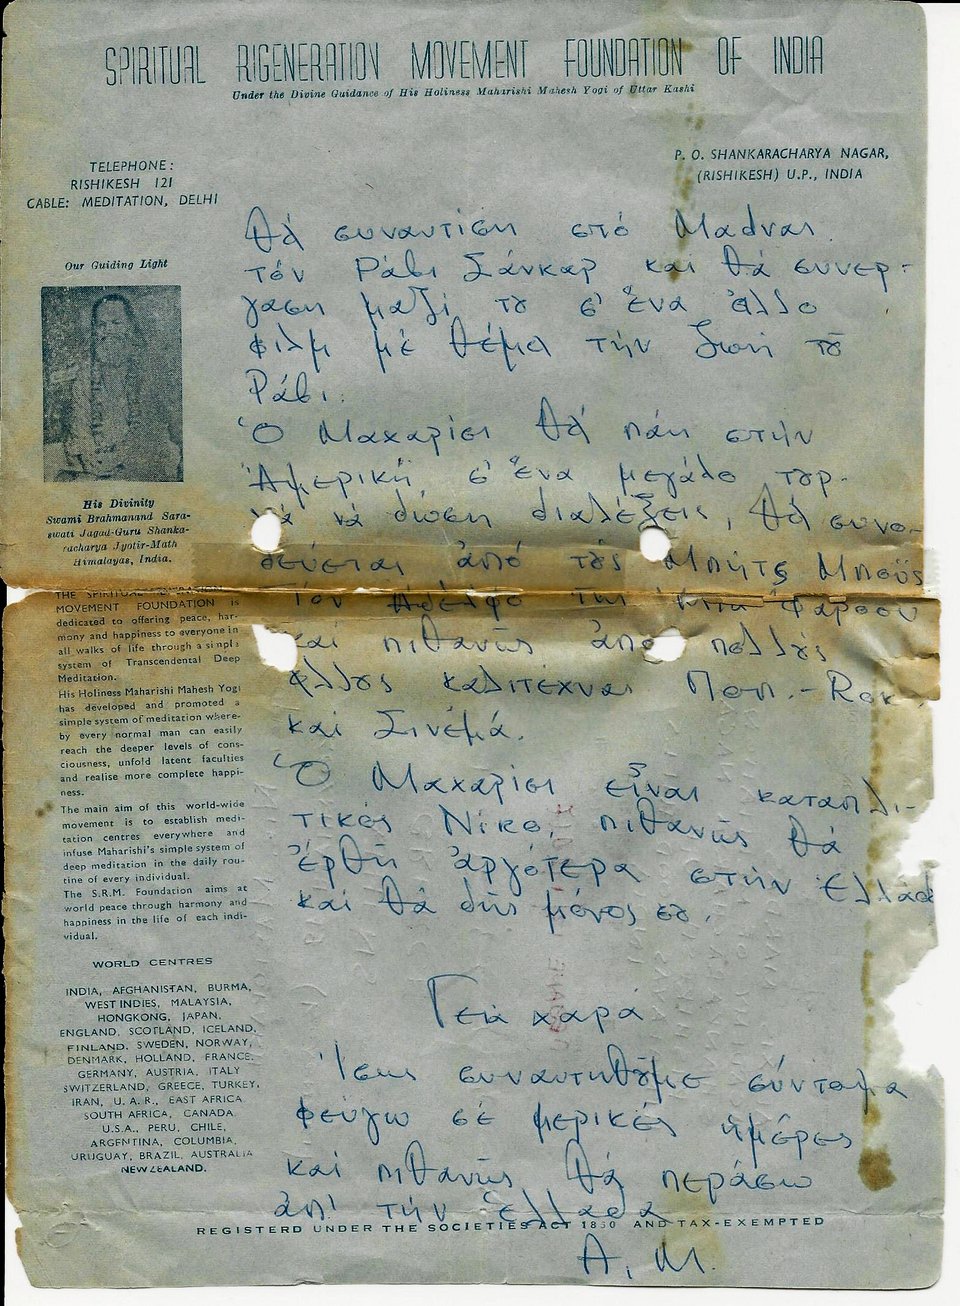 SPIRITUAL RIGENERATION MOVEMENT FOUNDATION OF INDIA
Under the Divine Guidance of His Holiness Maharishi Mahesh Yogi of Uttar Kashi
TELEPHONE:
RISHIKESH 121
CABLE: MEDITATION, DELHI
P. O. SHANKARACHARYA NAGAR,
(RISHIKESH) U.P., INDIA
Our Guiding Light
His Divinity
Swami Brahmanand Sara-
swati Jagad-Guru Shanka-
racharya Jyotir-Math
Himalayas, India.
THE SPIRITUAL
MOVEMENT FOUNDATION is
dedicated to offering peace, har-
mony and happiness to everyone in
all walks of life through a simple
system of Transcendental Deep
Meditation.
His Holiness Maharishi Mahesh Yogi
has developed and promoted a
simple system of meditation where-
by every normal man can easily
reach the deeper levels of cons-
ciousness, unfold latent faculties
and realise more complete happi-
ness.
The main aim of this world-wide
movement is to establish medi-
tation centres everywhere and
infuse Maharishi's simple system of
deep meditation in the daily rou-
tine of every individual.
The S.R.M. Foundation aims at
world peace through harmony and
happiness in the life of each indi-
vidual.
WORLD CENTRES
INDIA, AFGHANISTAN, BURMA,
WEST INDIES, MALAYSIA,
HONGKONG, JAPAN,
ENGLAND, SCOTLAND, ICELAND,
FINLAND, SWEDEN, NORWAY,
DENMARK, HOLLAND, FRANCE,
GERMANY, AUSTRIA, ITALY
SWITZERLAND, GREECE, TURKEY,
IRAN, U. A. R., EAST AFRICA
SOUTH AFRICA, CANADA
U.S.A., PERU, CHILE,
ARGENTINA, COLUMBIA,
URUGUAY, BRAZIL, AUSTRALIA
NEW ZEALAND.
θά συναντίση στό
τόν Ράβι Σάνκαρ καί θά συνερ-
γαση μαζί του σ' ἕνα ἄλλο
φιλμ μέ θέμα τήν ζωή τοῦ
Ράβι.
Ὁ Μαχαρίσι θά πάη στήν
Ἀμερική σ' ἕνα μεγάλο τουρ.
νά δώση διαλέξεις, θά συνο-
δεύεται ἀπό τούς Μπήτς Μπόϋς
Τόν Ἀδελφό τῆς Μία Φάρροου
καί πιθανῶς ἀπό πολλούς
ἄλλους καλιτέχναι Ποπ.-Ροκ,
καί Σινεμά.
Ὁ Μαχαρίσι εἶναι καταπλι-
τικός Νίκο, πιθανῶς θά
ἔρθη ἀργότερα στήν Ἑλλάδ
καί θά δῆς μόνος σου.
Γειά χαρά
Ἴσως συναντηθοῦμε σύντομα
φεύγω σέ μερικές ἡμέρες
καί πιθανῶς θά περάσω
ἀπ' τήν Ἑλλάδα
REGISTERD UNDER THE SOCIETIES ACT 1860 AND TAX-EXEMPTED
A. M.